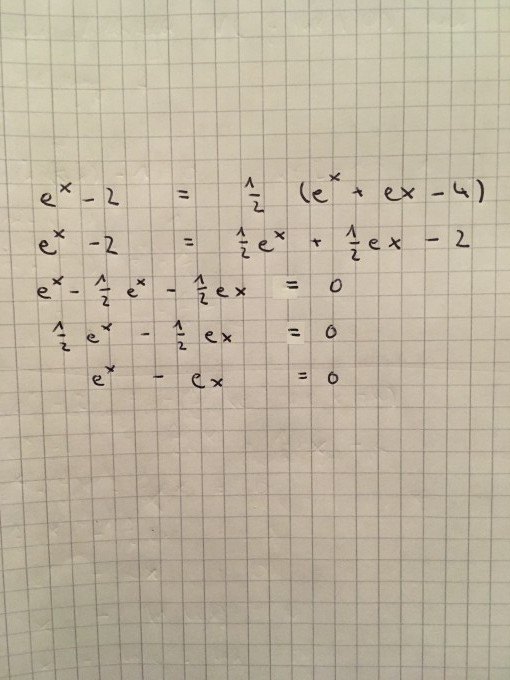 eˣ - 2 = 1/2 (eˣ + ex - 4)
eˣ - 2 = 1/2 eˣ + 1/2 ex - 2
eˣ - 1/2 eˣ - 1/2 ex = 0
1/2 eˣ - 1/2 ex = 0
eˣ - ex = 0